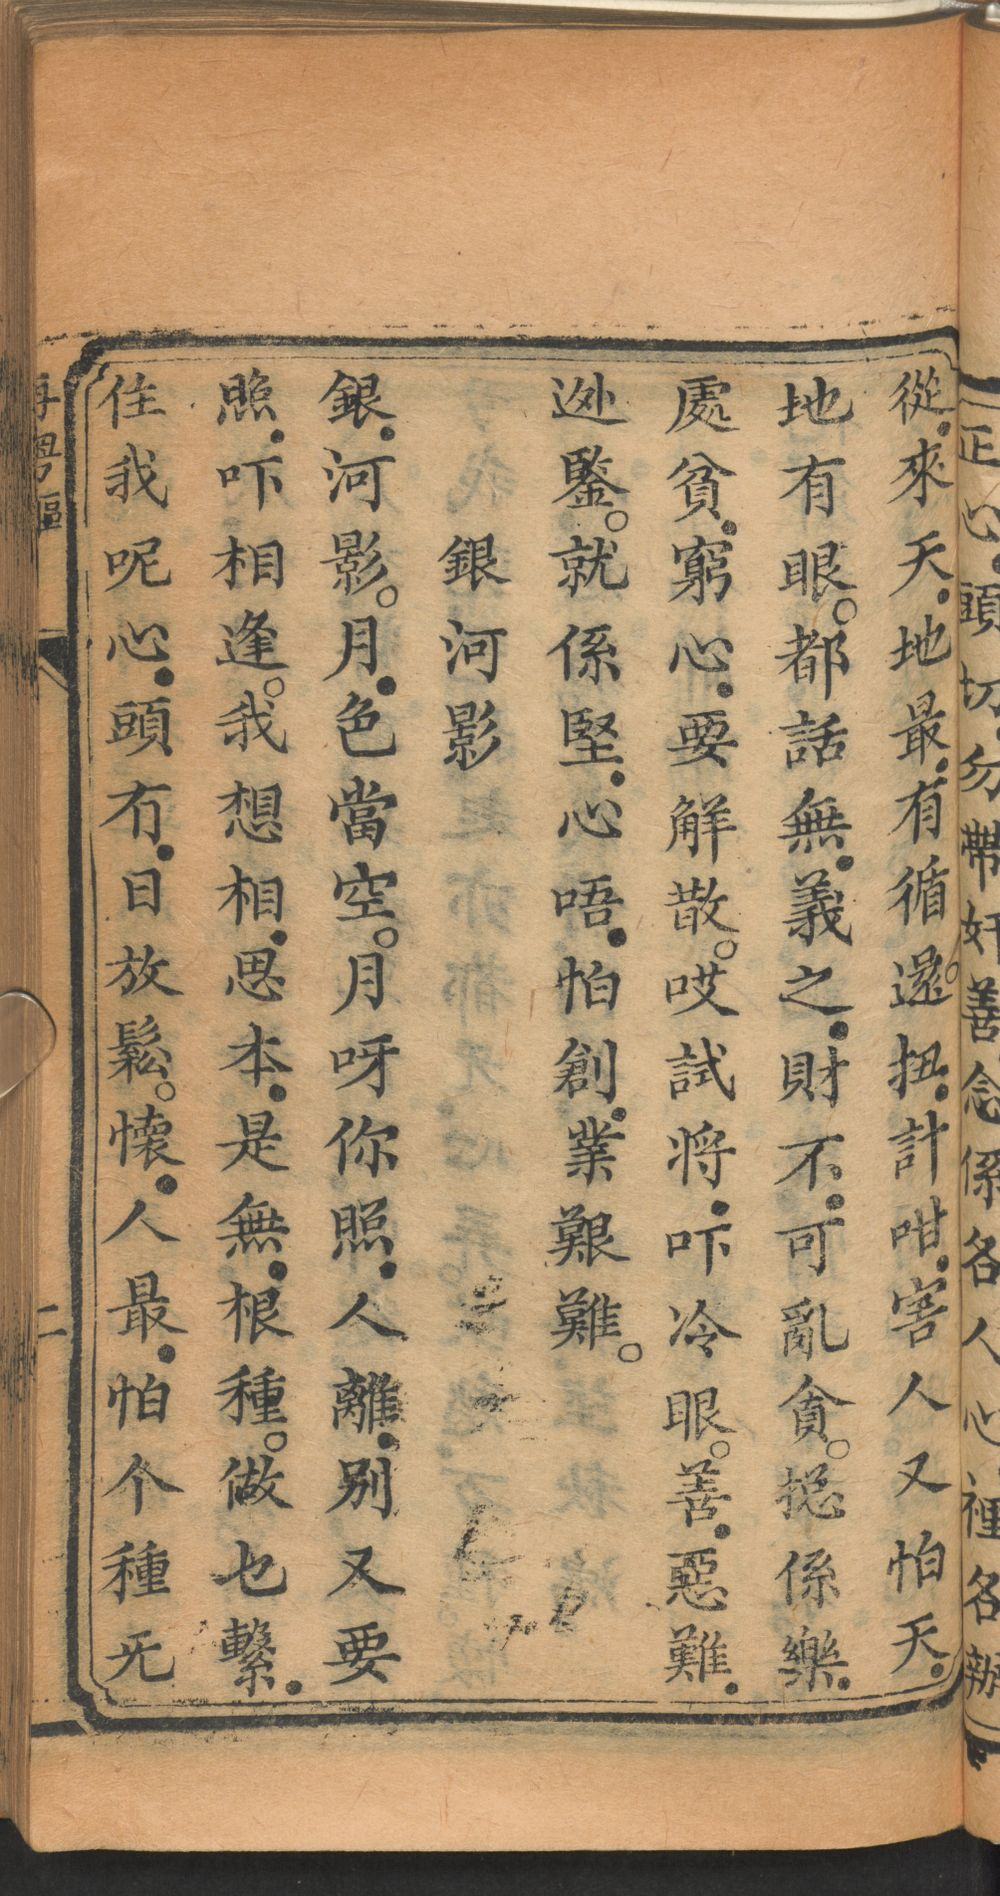 正心頭切勿帶奸善念係各人心裡各辦
從來天地最有循還。扭計咁害人又怕天
地有眼。都話無義之財不可亂貪。搃係樂
處貧窮心要解散。哎試將吓冷眼。善惡難
迯鑒。就係堅心唔怕創業艱難。
銀河影
銀河影。月色當空。月呀你照人離別又要
照吓相逢。我想相思本是無根種。做乜繫
住我呢心頭冇日放鬆。懷人最怕个種无
再粵謳
二